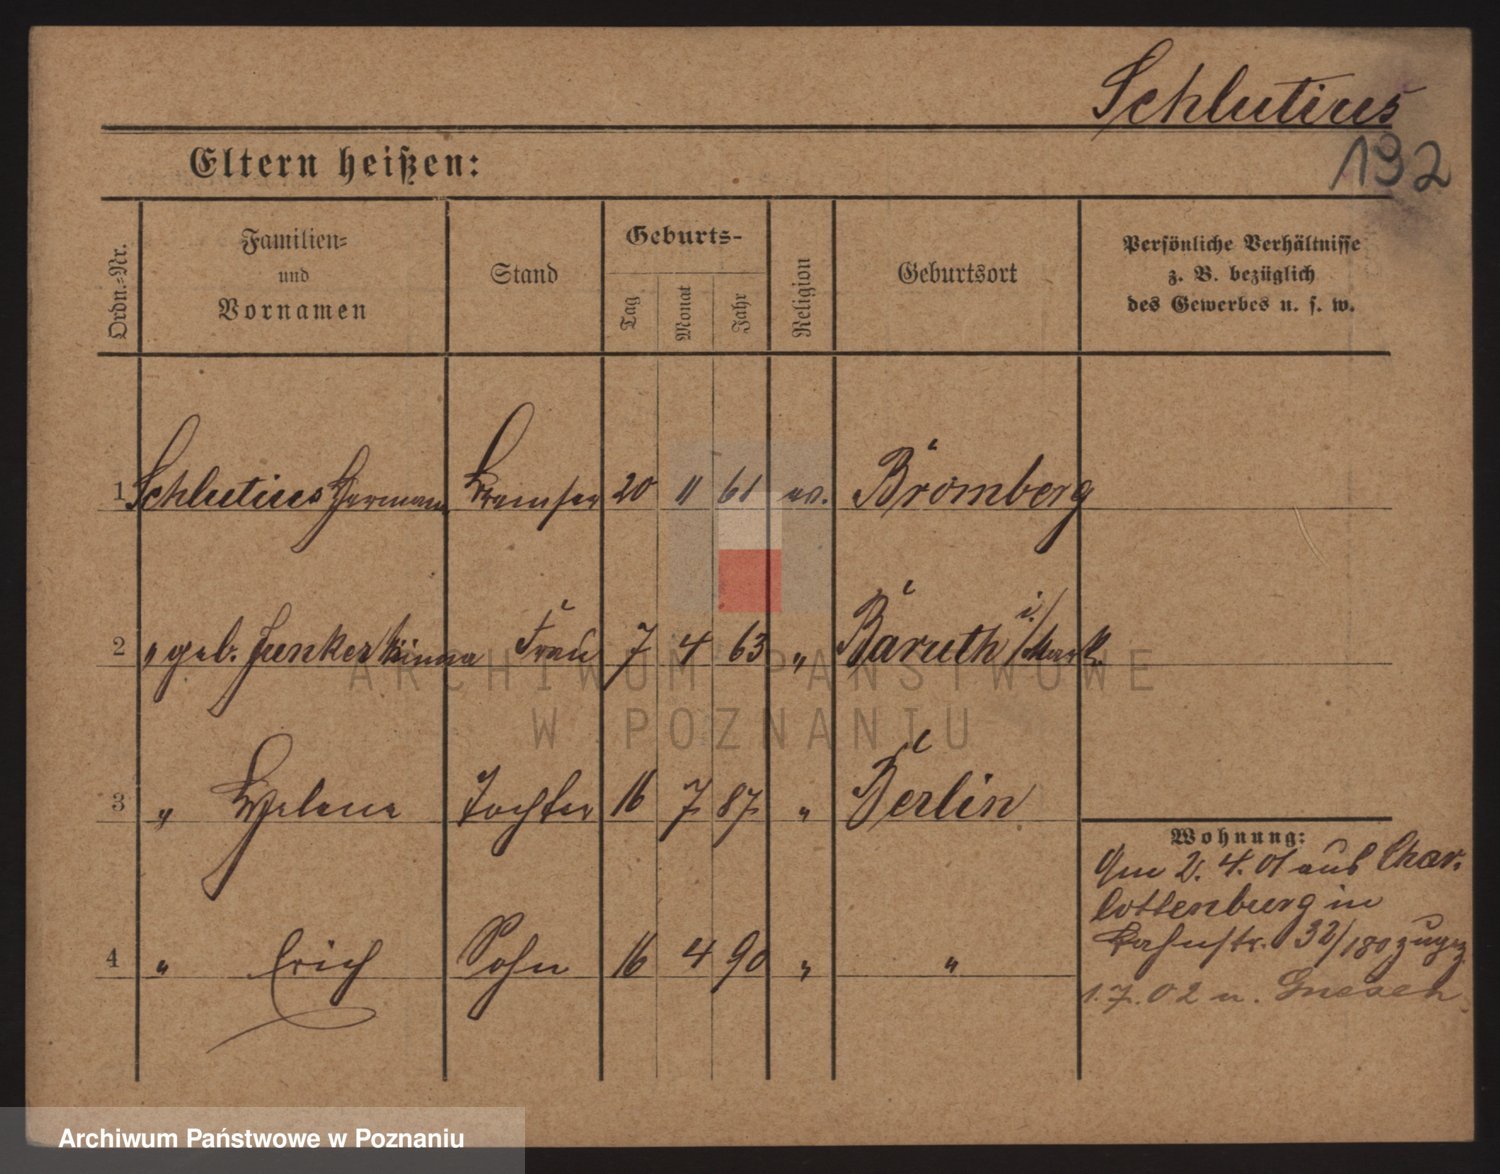 Schlutius
192
Eltern heißen:
Ordn.-Nr.
Familien-
und
Vornamen
Stand
Geburts-
Tag
Monat
Jahr
Religion
Geburtsort
Persönliche Verhältnisse
z. B. bezüglich
des Gewerbes u. s. w.
1 Schlutius Hermann 20 11 61 ev. Bromberg
2 " geb. Junker Frau 7 4 63 " Baruth i/Mark
3 " Helene Tochter 16 7 87 " Berlin
4 " Erich Sohn 16 4 90 " "
Wohnung:
Am 2. 4. 01 aus Char-
lottenburg in
32/180 zugez.
1. 7. 02 n. Gnesen
ARCHIWUM PAŃSTWOWE
W POZNANIU
Archiwum Państwowe w Poznaniu